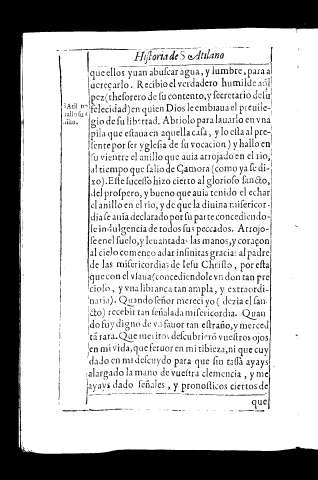 Historia de S Atilano
que ellos yuan abuscar agua, y lumbre, para a
dereçarlo. Recibio el verdadero humilde aql
pez (thesorero de su contento, y secretario de su
felecidad) en quien Dios le embiaua el preuile-
gio de su libertad. Abriolo para lauarlo en vna
pila que estaua en aquella casa, y lo esta al pre-
sente por ser yglesia de su vocacion) y hallo en
su vientre el anillo que auia arrojado en el rio,
al tiempo que salio de Çamora (como ya se di-
xo). Este sucesso hizo cierto al glorioso sancto,
del prospero, y bueno que auia tenido el echar
el anillo en el rio, y de que la diuina misericor-
dia se auia declarado por su parte concediendo-
le indulgencia de todos sus peccados. Arrojo-
se en el suelo, y leuantadas las manos, y coraçon
al cielo començo a dar infinitas gracias al padre
de las misericordias de Iesu Christo, por esta
que con el vsaua (concediendole vn don tan pre
cioso, y vna librança tan ampla, y extraordi-
naria). Quando señor mereci yo (dezia el san-
cto) recebir tan señalada misericordia. Quan
do fuy digno de vn fauor tan estraño, y merced
tā rara. Que meritos descubrierō vuestros ojos
en mi vida, que feruor en mi tibieza, ni que cuy
dado en mi descuydo para que sin tassa ayays
alargado la mano de vuestra clemencia, y me
ayays dado señales, y pronosticos ciertos de
que
S Atil no